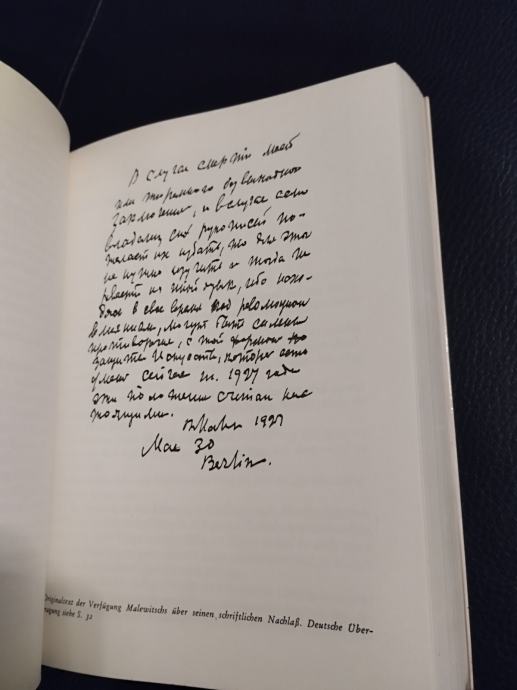 В случае смерти моей
или тюремного безвинного
заключения, и в случае если
владелец сих рукописей по-
желает их издать, то для этого
их нужно изучить и тогда пе-
ревести на иной язык, ибо нахо-
дясь в свое время под революцион
влиянием, могут быть сильные
противоречия, с той формой
защиты Искусства, которая есть
у меня сейчас т. 1927 года
эти положения считать нас
тоящими.
КМалев 1927
Мая 30
Berlin.
Originaltext der Verfügung Malewitschs über seinen schriftlichen Nachlaß. Deutsche Über-
tragung siehe S. 32